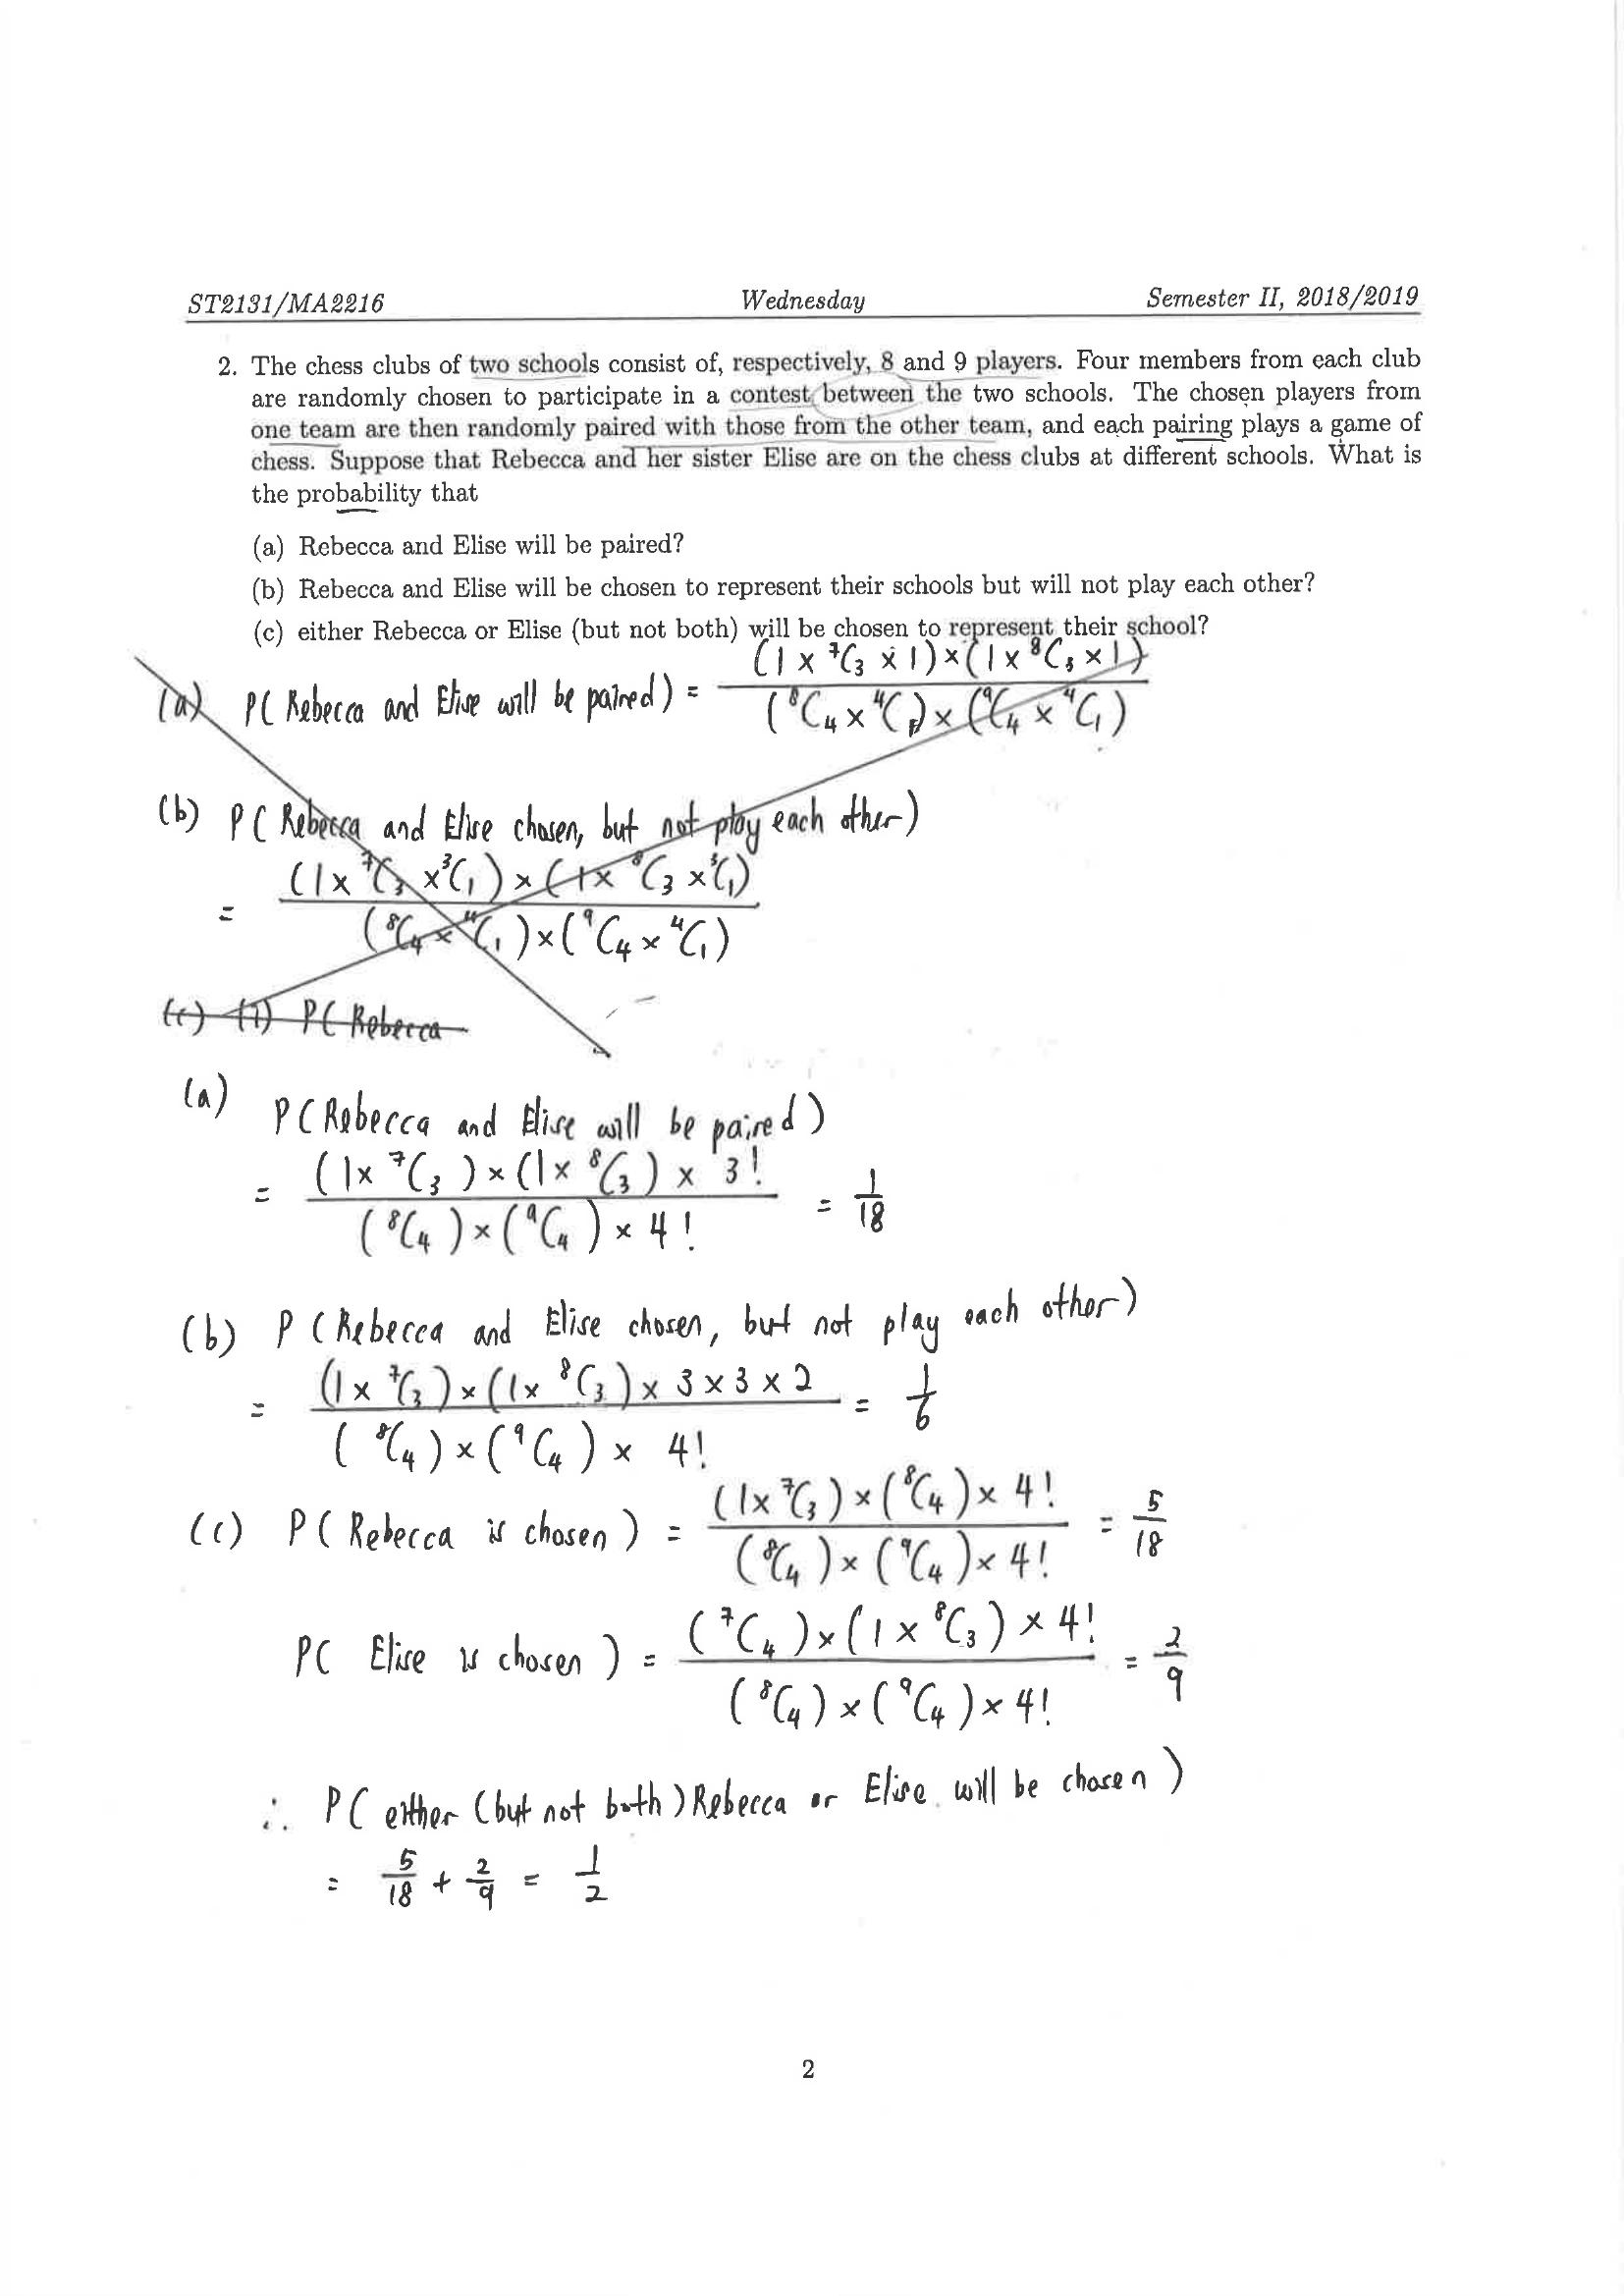 ST2131/MA2216 Wednesday Semester II, 2018/2019
2. The chess clubs of two schools consist of, respectively, 8 and 9 players. Four members from each club
are randomly chosen to participate in a contest between the two schools. The chosen players from
one team are then randomly paired with those from the other team, and each pairing plays a game of
chess. Suppose that Rebecca and her sister Elise are on the chess clubs at different schools. What is
the probability that
(a) Rebecca and Elise will be paired?
(b) Rebecca and Elise will be chosen to represent their schools but will not play each other?
(c) either Rebecca or Elise (but not both) will be chosen to represent their school?
(a) P( Rebecca and Elise will be paired) = (1 x ⁷C₃ x 1) x (1 x ⁸C₃ x 1)
(⁸C₄ x ⁴C₁) x (⁹C₄ x ⁴C₁)
(b) P( Rebecca and Elise chosen, but not play each other)
(1 x ⁷C₃ x ³C₁) x (1 x ⁸C₃ x ³C₁)
=
(⁸C₄ x ⁴C₁) x (⁹C₄ x ⁴C₁)
(c) (i) P( Rebecca
(a)
P( Rebecca and Elise will be paired)
= (1 x ⁷C₃) x (1 x ⁸C₃) x 3! = 1/18
(⁸C₄) x (⁹C₄) x 4!
(b) P( Rebecca and Elise chosen, but not play each other)
= (1 x ⁷C₃) x (1 x ⁸C₃) x 3 x 3 x 2 = 1/6
(⁸C₄) x (⁹C₄) x 4!
(c) P( Rebecca is chosen) = (1 x ⁷C₃) x (⁸C₄) x 4! = 5/18
(⁸C₄) x (⁹C₄) x 4!
P( Elise is chosen) = (⁷C₄) x (1 x ⁸C₃) x 4! = 2/9
(⁸C₄) x (⁹C₄) x 4!
∴ P( either (but not both) Rebecca or Elise will be chosen)
= 5/18 + 2/9 = 1/2
2